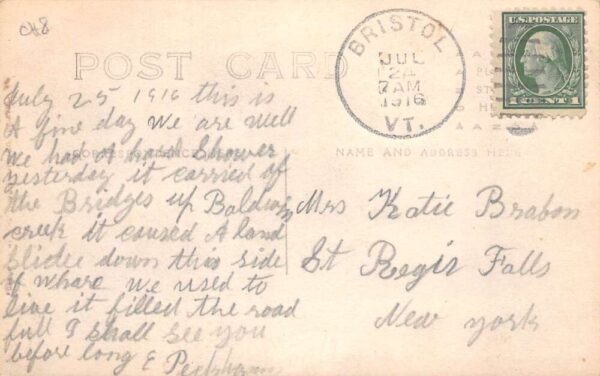 CH8
U.S. POSTAGE
1 CENT 1
BRISTOL
JUL
24
7AM
1916
VT.
POST CARD
NAME AND ADDRESS HERE
July 25 1916 this is
A fine day We are well
We had A hard Shower
yesterday it carried of
the Bridges up Baldwin
creek it caused A land
Slidee down this side
of whare we used to
live it filled the road
full I shall see you
before long E
Mrs Katie Brabon
St Regis Falls
New york